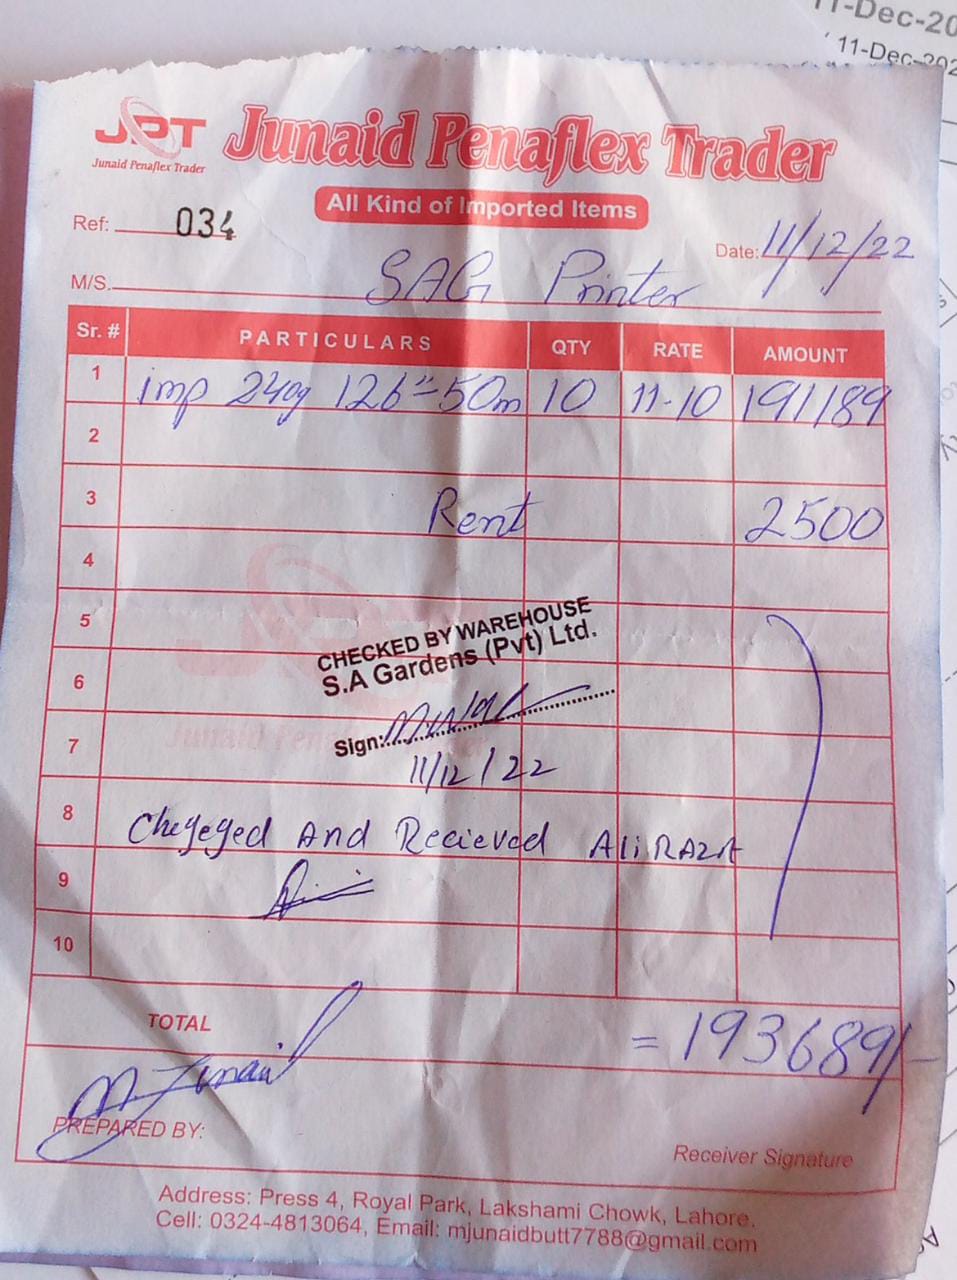 11-Dec-20
11-Dec-202
JPT
Junaid Penaflex Trader
Junaid Penaflex Trader
All Kind of Imported Items
Ref: 034
Date: 11/12/22
M/S. SAG Printer
Sr. # PARTICULARS QTY RATE AMOUNT
1 imp 240g 126"-50m 10 11-10 191189
2
3 Rent 2500
4
5
CHECKED BY WAREHOUSE
S.A Gardens (Pvt) Ltd.
6
Sign:
7
11/12/22
8 Chegeged And Recieved Ali RAZA
9
10
TOTAL = 193689/-
M Junaid
PREPARED BY:
Receiver Signature
Address: Press 4, Royal Park, Lakshami Chowk, Lahore.
Cell: 0324-4813064, Email: mjunaidbutt7788@gmail.com